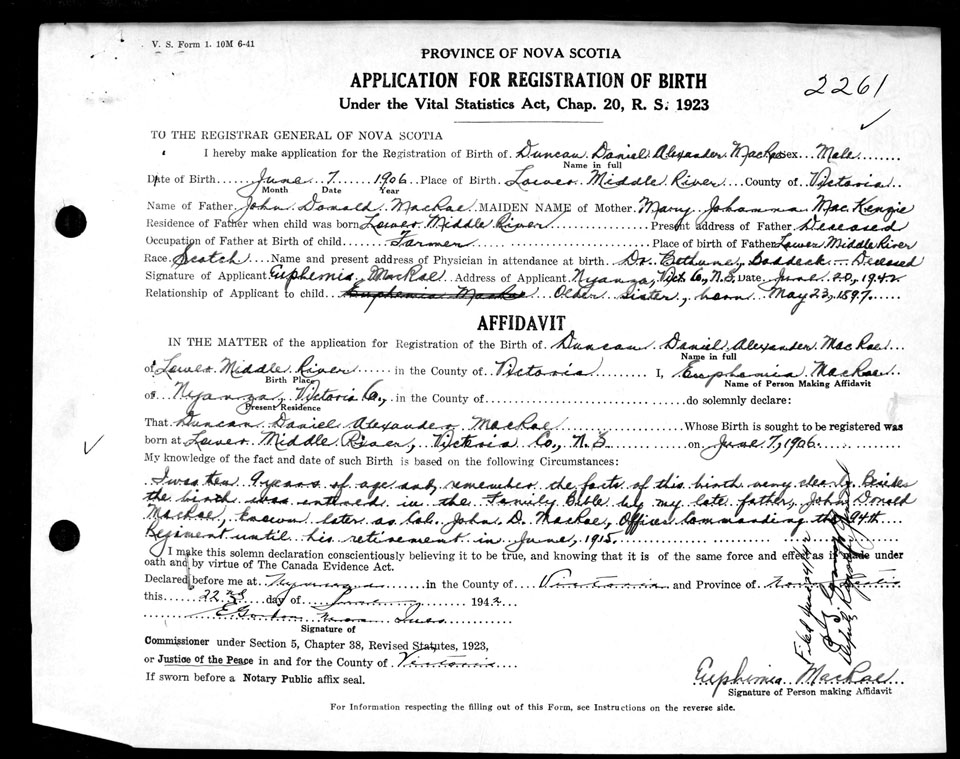 V. S. Form 1. 10M 6-41
PROVINCE OF NOVA SCOTIA
APPLICATION FOR REGISTRATION OF BIRTH
2261
Under the Vital Statistics Act, Chap. 20, R. S. 1923
TO THE REGISTRAR GENERAL OF NOVA SCOTIA
I hereby make application for the Registration of Birth of Duncan Daniel Alexander MacRae Sex Male
Name in full
Date of Birth June 7 1906 Place of Birth Lower Middle River County of Victoria
Month Date Year
Name of Father John Donald MacRae MAIDEN NAME of Mother Mary Johanna MacKenzie
Residence of Father when child was born Lower Middle River Present address of Father Deceased
Occupation of Father at Birth of child Farmer Place of birth of Father Lower Middle River
Race Scotch Name and present address of Physician in attendance at birth Dr. Bethune, Baddeck - Deceased
Signature of Applicant Euphemia MacRae Address of Applicant Nyanza, Vict. Co., N.S. Date June 20, 1942
Relationship of Applicant to child Euphemia MacRae Older Sister, born May 23, 1897.
AFFIDAVIT
IN THE MATTER of the application for Registration of the Birth of Duncan Daniel Alexander MacRae
Name in full
of Lower Middle River in the County of Victoria I, Euphemia MacRae
Birth Place Name of Person Making Affidavit
of Nyanza, Victoria Co., in the County of do solemnly declare:
Present Residence
That Duncan Daniel Alexander MacRae Whose Birth is sought to be registered was
born at Lower Middle River, Victoria Co., N.S on June 7, 1906.
My knowledge of the fact and date of such Birth is based on the following Circumstances:
I was then 9 years of age and remember the facts of this birth very clearly. Besides
the birth was entered in the Family Bible by my late father, John Donald
MacRae, known later as Col. John D. MacRae, Officer Commanding the 94th
Regiment until his retirement in June, 1915.
I make this solemn declaration conscientiously believing it to be true, and knowing that it is of the same force and effect as if made under
oath and by virtue of The Canada Evidence Act.
Declared before me at Nyanza in the County of Victoria and Province of Nova Scotia
this 22nd day of June 1942
E Gordon
Signature of
Commissioner under Section 5, Chapter 38, Revised Statutes, 1923,
or Justice of the Peace in and for the County of Victoria
If sworn before a Notary Public affix seal.
Filed June 24/42
Deputy Registrar General
Euphemia MacRae
Signature of Person making Affidavit
For Information respecting the filling out of this Form, see Instructions on the reverse side.